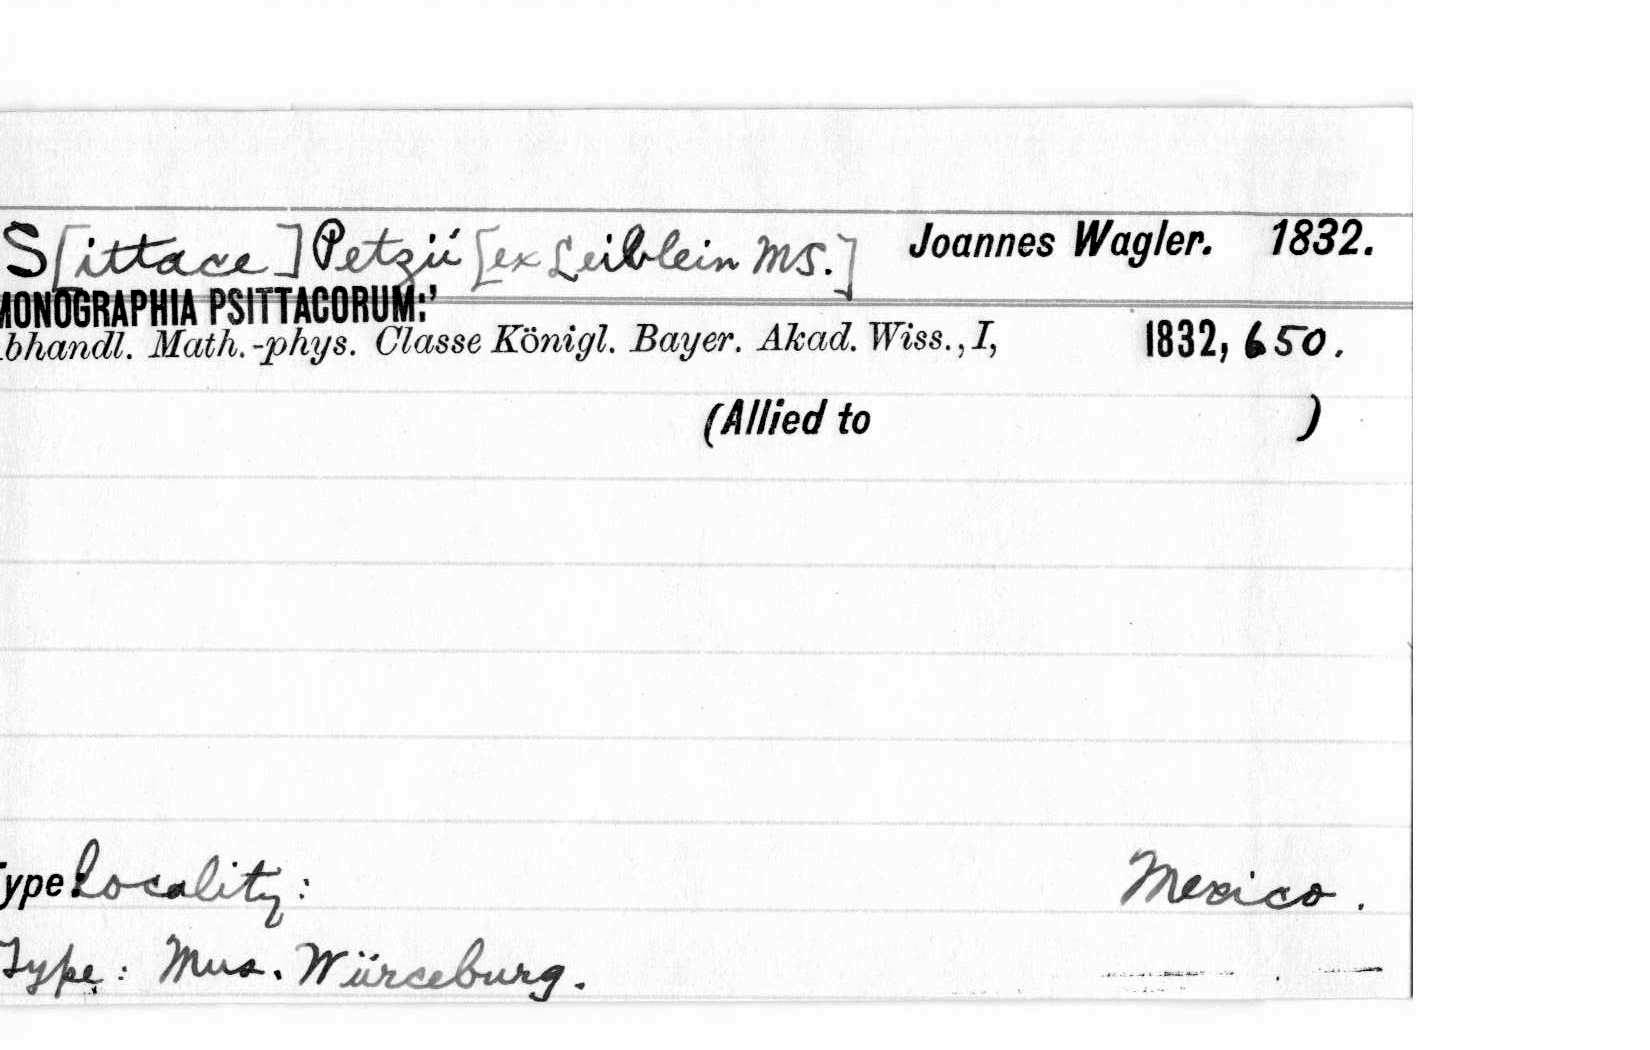 S[ittace] Petzii [ex Leiblein MS.] Joannes Wagler. 1832.
MONOGRAPHIA PSITTACORUM:'
bhandl. Math.-phys. Classe Königl. Bayer. Akad. Wiss., I, 1832, 650.
(Allied to )
ype locality: Mexico.
Type: Mus. Würceburg.